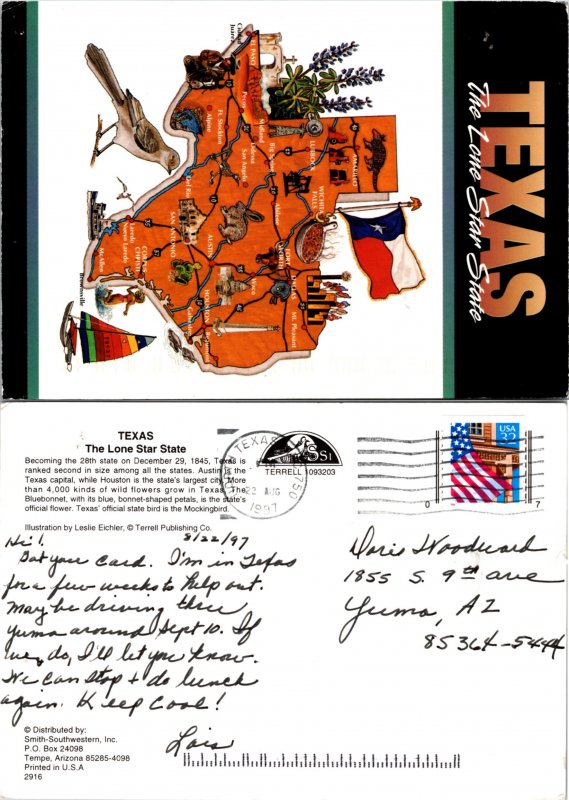 TEXAS
The Lone Star State
Ciudad Juárez
EL PASO
Pecos
Ft. Stockton
Alpine
Midland
Odessa
San Angelo
Big Spring
LUBBOCK
AMARILLO
WICHITA FALLS
Abilene
Del Rio
SAN ANTONIO
AUSTIN
FORT WORTH
DALLAS
Mt. Pleasant
Waco
HOUSTON
Beaumont
Galveston
Laredo
Nuevo Laredo
CORPUS CHRISTI
McAllen
Brownsville
TEXAS
The Lone Star State
Becoming the 28th state on December 29, 1845, Texas is
ranked second in size among all the states. Austin is the
Texas capital, while Houston is the state's largest city. More
than 4,000 kinds of wild flowers grow in Texas. The
Bluebonnet, with its blue, bonnet-shaped petals, is the state's
official flower. Texas' official state bird is the Mockingbird.
Illustration by Leslie Eichler, © Terrell Publishing Co.
TEXAS
22 AUG
1997
SS1
TERRELL 1093203
USA
32
0 7
8/22/97
Hi!
Got your card. I'm in Texas
for a few weeks to help out.
May be driving thru
Yuma around Sept 10. If
we do, I'll let you know.
We can stop + do lunch
again. Keep Cool!
Lois
Doris Woodward
1855 S. 9th ave
Yuma, AZ
85364-5444
© Distributed by:
Smith-Southwestern, Inc.
P.O. Box 24098
Tempe, Arizona 85285-4098
Printed in U.S.A
2916